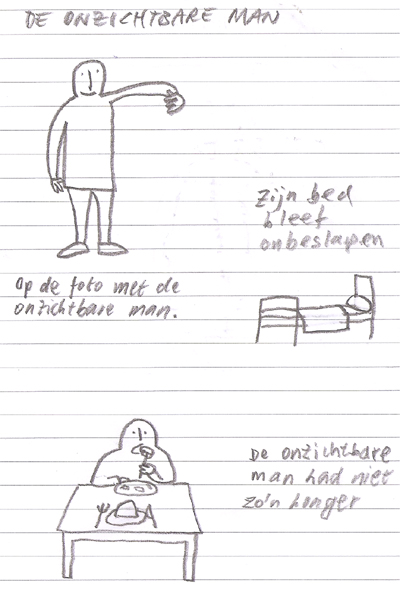 DE ONZICHTBARE MAN
zijn bed
bleef
onbeslapen
op de foto met de
onzichtbare man.
De onzichtbare
man had niet
zo'n honger